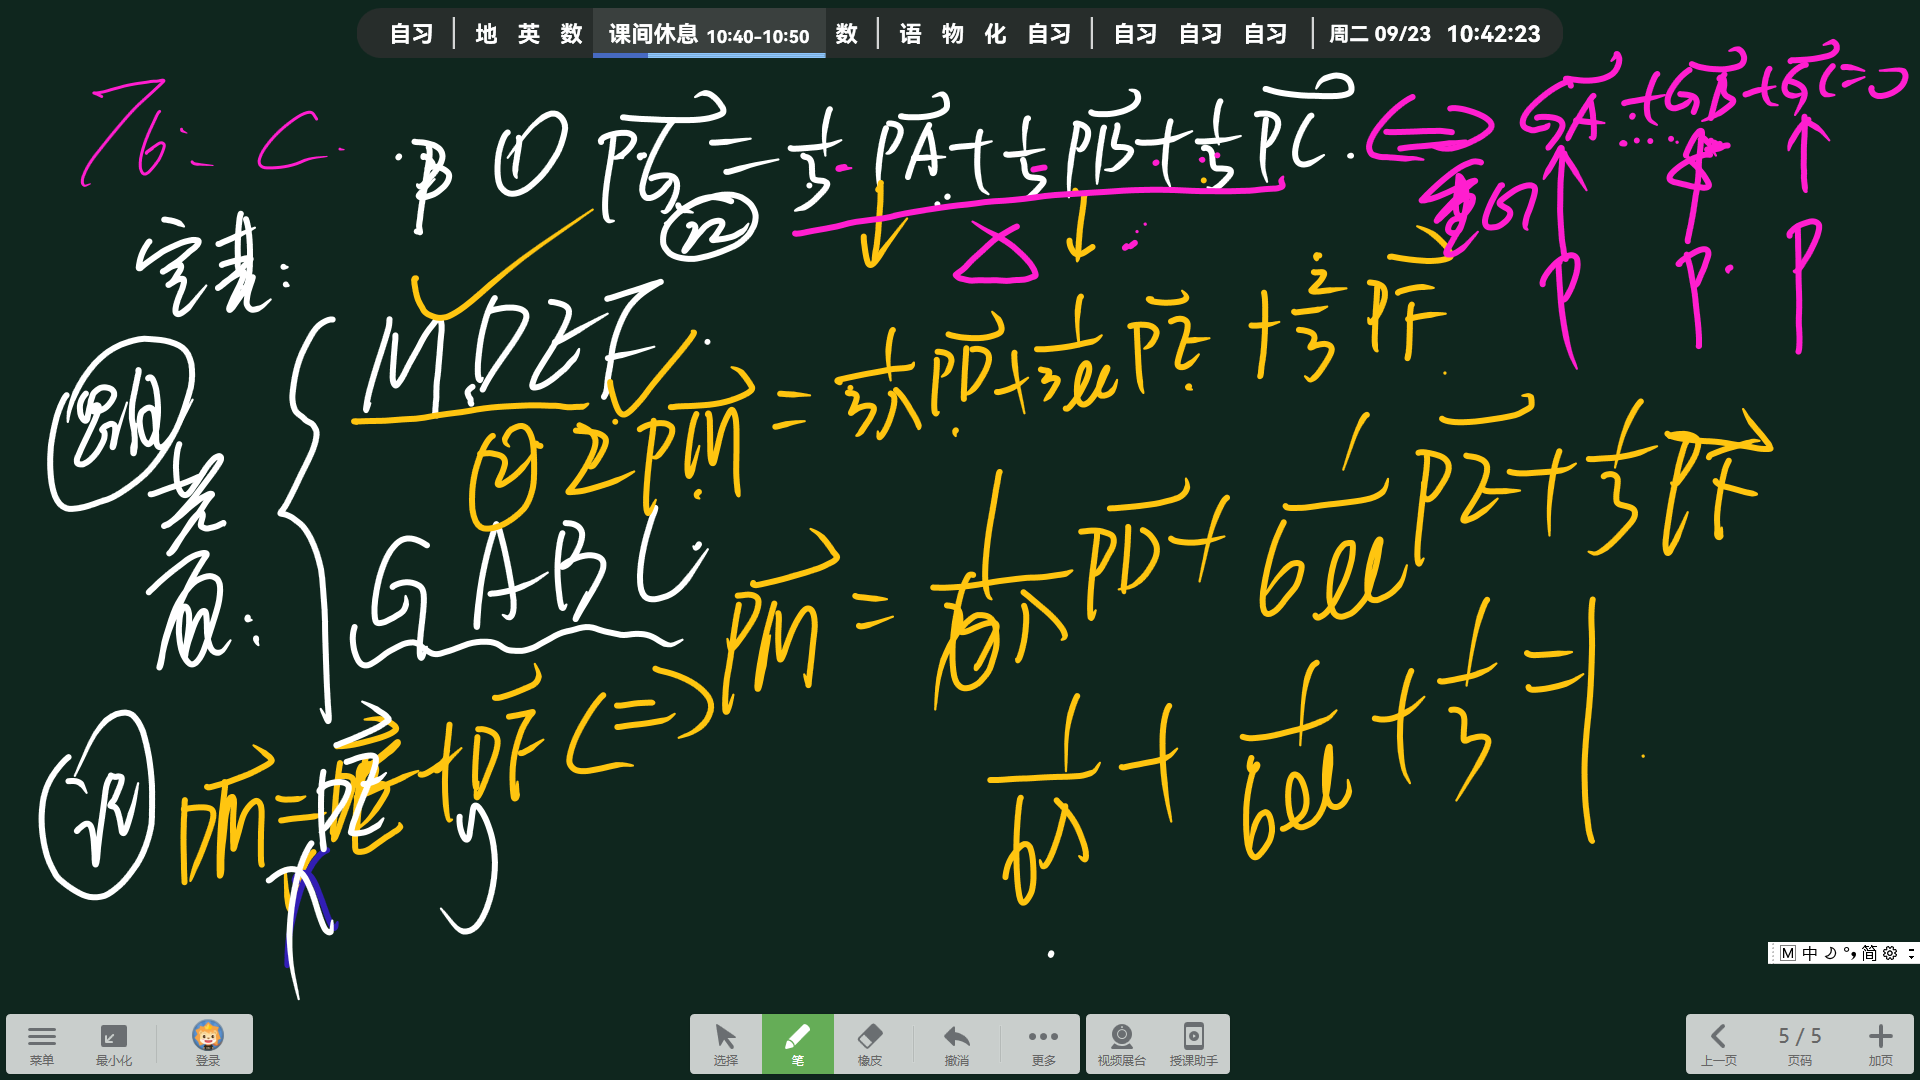 自习 | 地 英 数 课间休息 10:40-10:50 数 | 语 物 化 自习 | 自习 自习 自习 | 周二 09/23 10:42:23
T6. C.
B ① PG = 1/3 PA + 1/3 PB + 1/3 PC. ⟺ GA + GB + GC = 0
重心
P P. P
定基:
M.DEF.
② 2PM = 1/3λ PD + 1/3μ PE + 2/3 PF
共面:
GABC
PM = 1/6λ PD + 1/6μ PE + 1/3 PF
DM = DE + DF ⟺
x y
1/6λ + 1/6μ + 1/3 = 1
M 中 简
菜单 最小化 登录 选择 笔 橡皮 撤消 更多 视频展台 授课助手 上一页 5 / 5 页码 加页